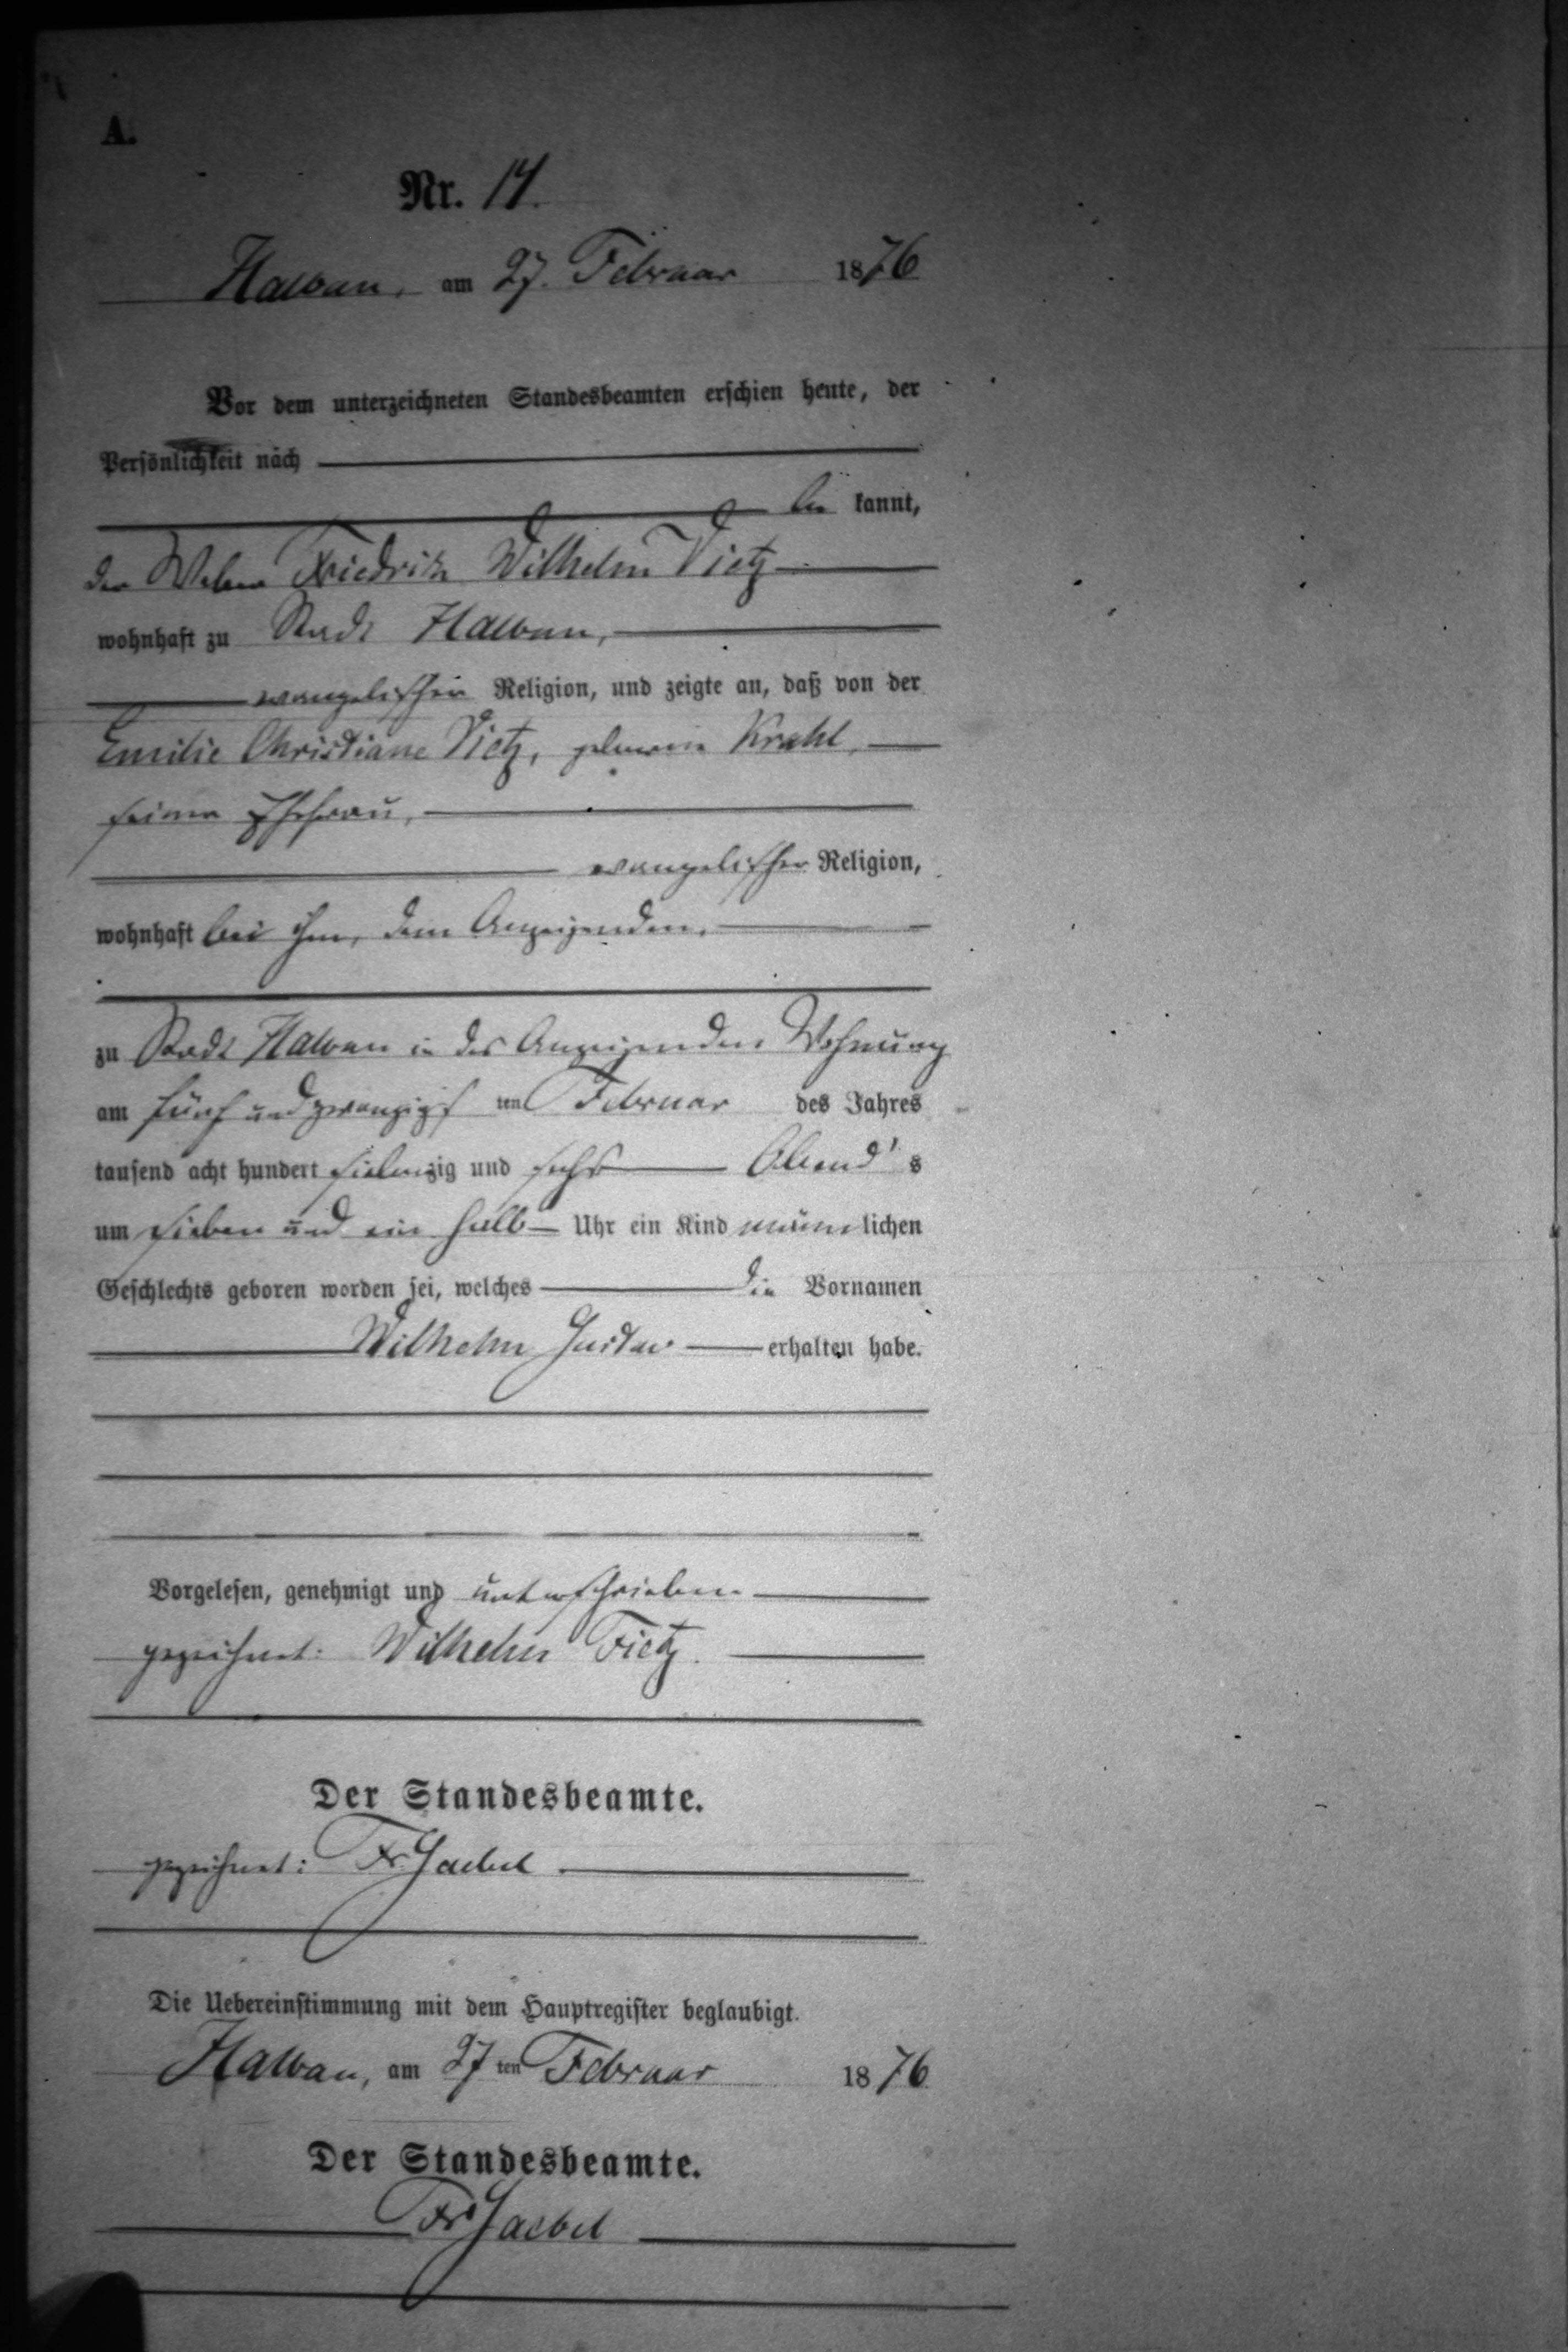 A.
Nr. 14.
Halbau, am 27. Februar 1876
Vor dem unterzeichneten Standesbeamten erschien heute, der
Persönlichkeit nach
be kannt,
der Weber Friedrich Wilhelm Vietz
wohnhaft zu Stadt Halbau,
evangelischer Religion, und zeigte an, daß von der
Emilie Christiane Vietz, geborene Krahl,
seiner Ehefrau,
evangelischer Religion,
wohnhaft bei ihm, dem Anzeigenden,
zu Stadt Halbau in des Anzeigenden Wohnung
am fünf und zwanzigs ten Februar des Jahres
tausend acht hundert siebenzig und sechs Abend's
um sieben und ein halb Uhr ein Kind männlichen
Geschlechts geboren worden sei, welches die Vornamen
Wilhelm Gustav erhalten habe.
Vorgelesen, genehmigt und unterschrieben
gezeichnet: Wilhelm Fietz.
Der Standesbeamte.
gezeichnet: Fr. Jaebel
Die Uebereinstimmung mit dem Hauptregister beglaubigt.
Halbau, am 27 ten Februar 1876
Der Standesbeamte.
Fr Jaebel